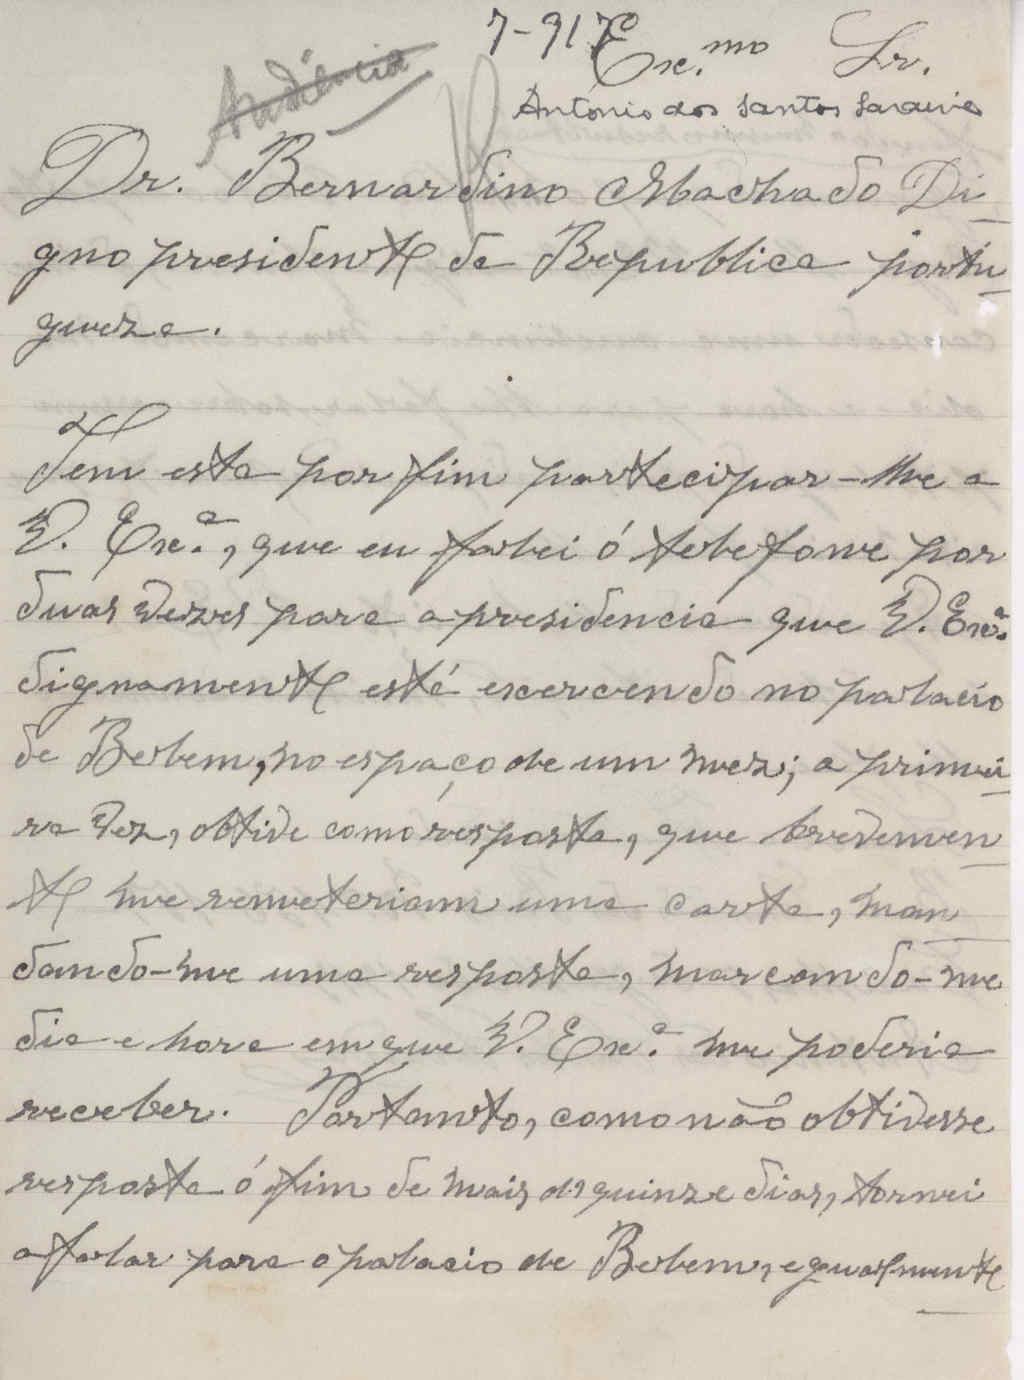 7-917
Audiencia
Ex.mo Sr.
António dos Santos Saraiva
Dr. Bernardino Machado Di-
gno presidente da Republica portu-
gueza.
Tem esta por fim partecipar-lhe a
V. Ex.ª, que eu falei ó telefone por
duas vezes para a presidencia que V. Exª.
dignamente está exercendo no palacio
de Belem, no espaço de um mez; a primei-
ra vez, obtive como resposta, que brevemen-
te me remeteriam uma carta, man-
dando-me uma resposta, marcando-me
dia e hora em que V. Ex.ª me poderia
receber. Portanto, como não obtivesse
resposta ó fim de mais de quinze dias, tornei
a falar para o palacio de Belem, egualmente